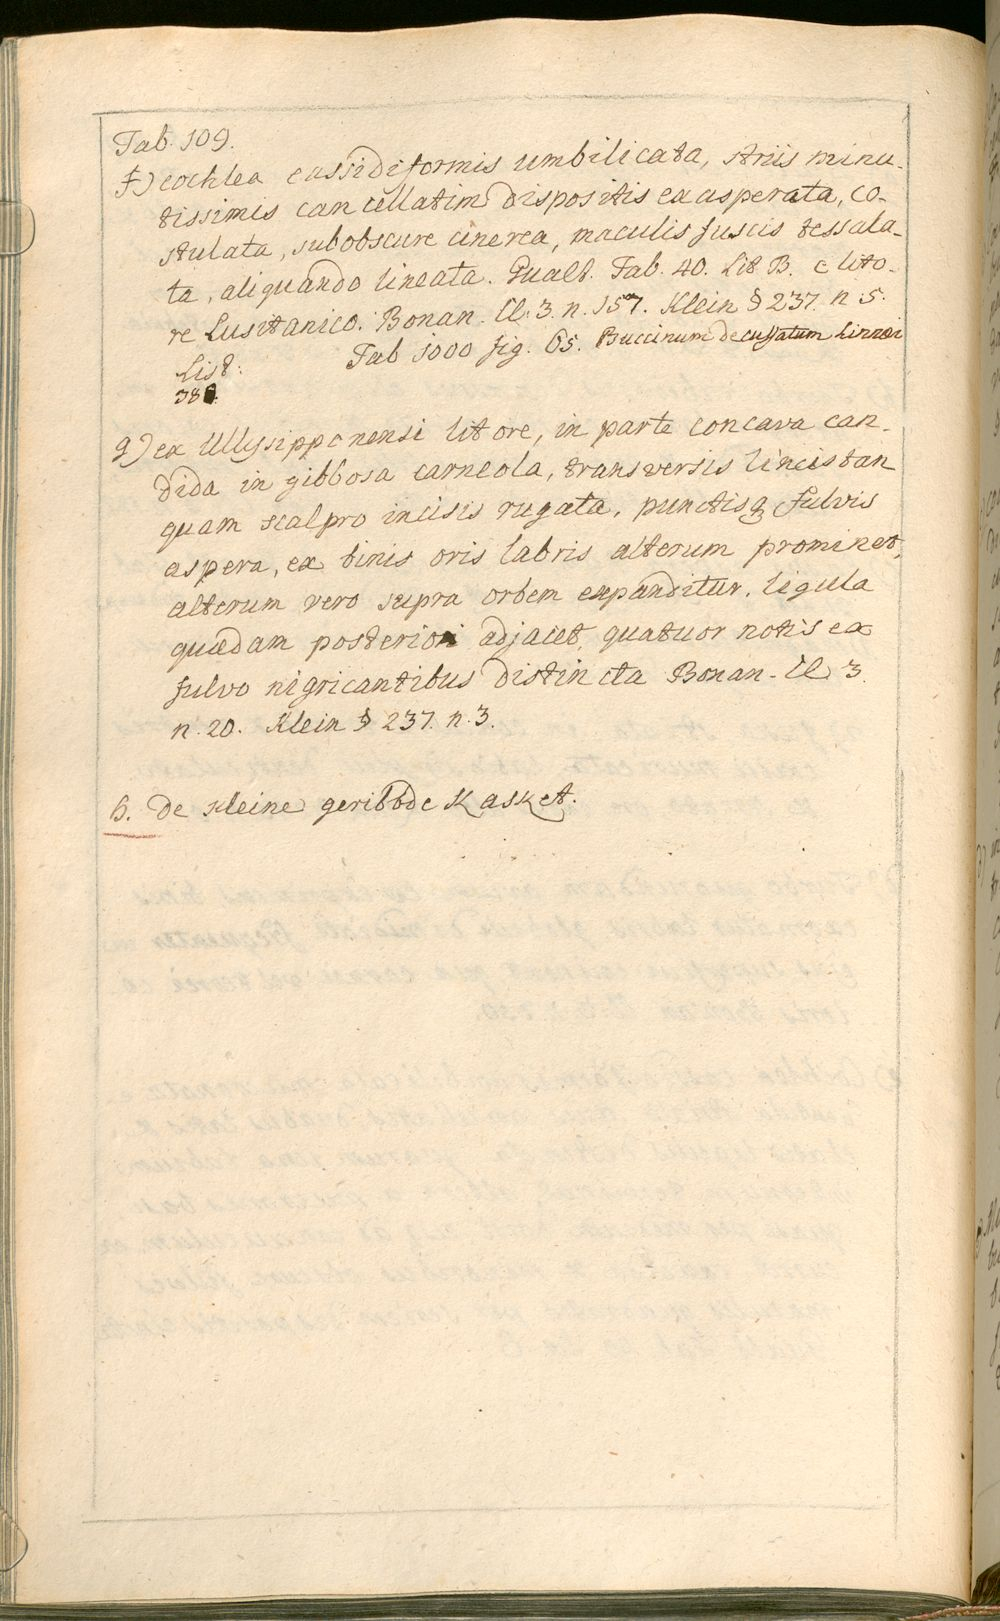 Tab. 109.
f) cochlea cassidiformis umbilicata, striis minu-
tissimis cancellatim dispositis exasperata, co-
stulata, subobscure cinerea, maculis fuscis tessala-
ta, aliquando lineata. Gualt. Tab. 40. Lit B. e lito-
re Lusitanico. Bonan. Cl. 3. n. 157. Klein § 237. n. 5.
List: Tab 1000 fig. 65. Buccinum decussatum Linnæi
38
g) ex Ullysipponensi litore, in parte concava can-
dida in gibbosa carneola, transversis lineis tan
quam scalpro incisis rugata, punctisq fulvis
aspera, ex binis oris labris alterum prominet,
alterum vero supra orbem expanditur, ligula
quædam posteriori adjacet, quatuor notis ex
fulvo nigricantibus distincta Bonan. Cl 3.
n. 20. Klein § 237. n. 3.
h. De kleine geribbde Kasket.